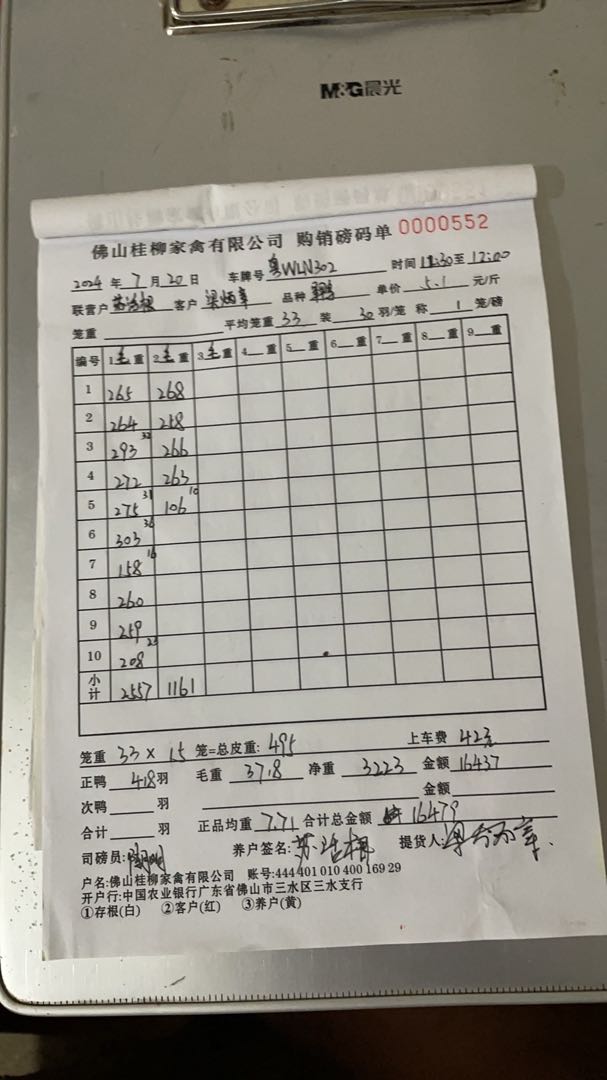 M&G晨光
佛山桂柳家禽有限公司 购销磅码单 0000552
2024 年 7 月 20 日 车牌号 粤WLN302 时间 11:30 至 12:00
联营户 客户 梁 品种 单价 5.1 元/斤
笼重 平均笼重 33 装 30 羽/笼 称 1 笼/磅
编号 1毛重 2毛重 3毛重 4 重 5 重 6 重 7 重 8 重 9 重
1 265 268
2 264 258
3 293 32 266
4 272 263
5 275 31 106 10
6 303 36
7 158 16
8 260
9 259
10 208 23
小计 2557 1161
笼重 33 × 15 笼=总皮重: 495 上车费 42元
正鸭 418 羽 毛重 3718 净重 3223 金额 16437
次鸭 羽 金额
合计 羽 正品均重 7.71 合计总金额 16479
司磅员: 养户签名: 苏 提货人:
户名:佛山桂柳家禽有限公司 账号:444 401 010 400 169 29
开户行:中国农业银行广东省佛山市三水区三水支行
①存根(白) ②客户(红) ③养户(黄)